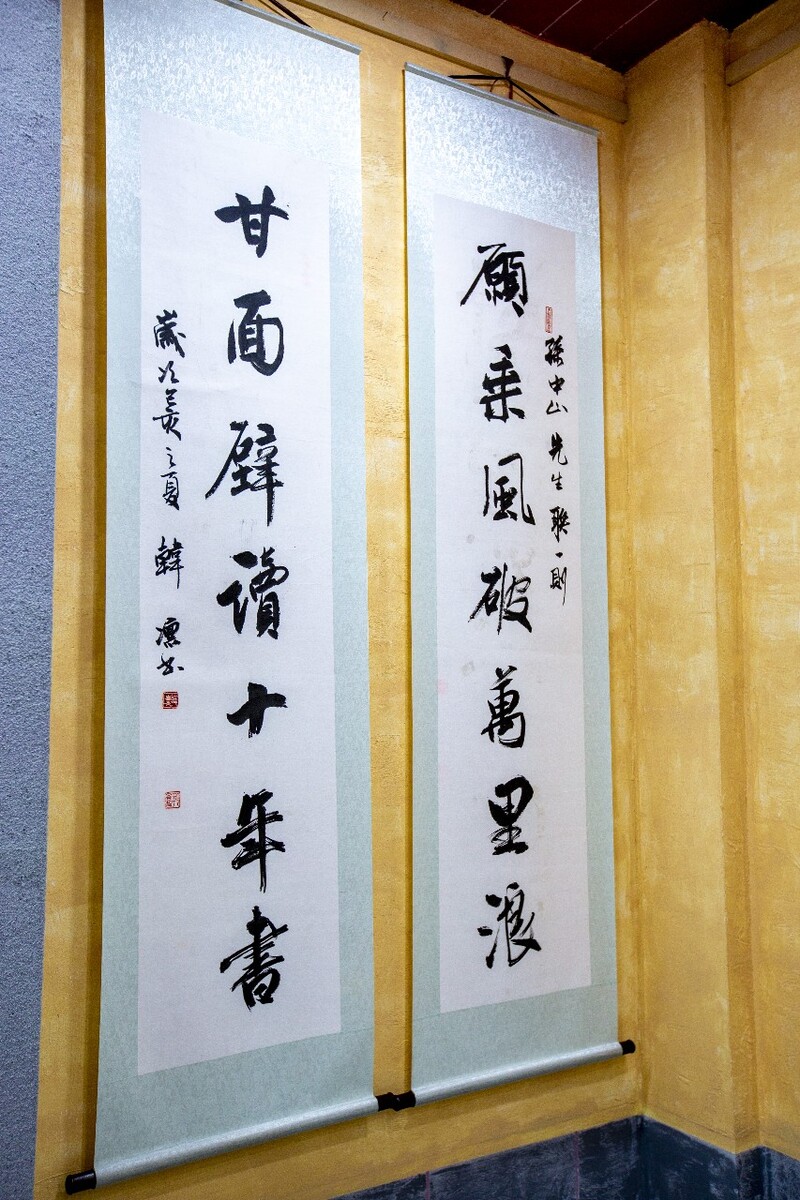 孫中山先生聯一則
願乘風破萬里浪
甘面壁讀十年書
歲次己亥之夏 韓